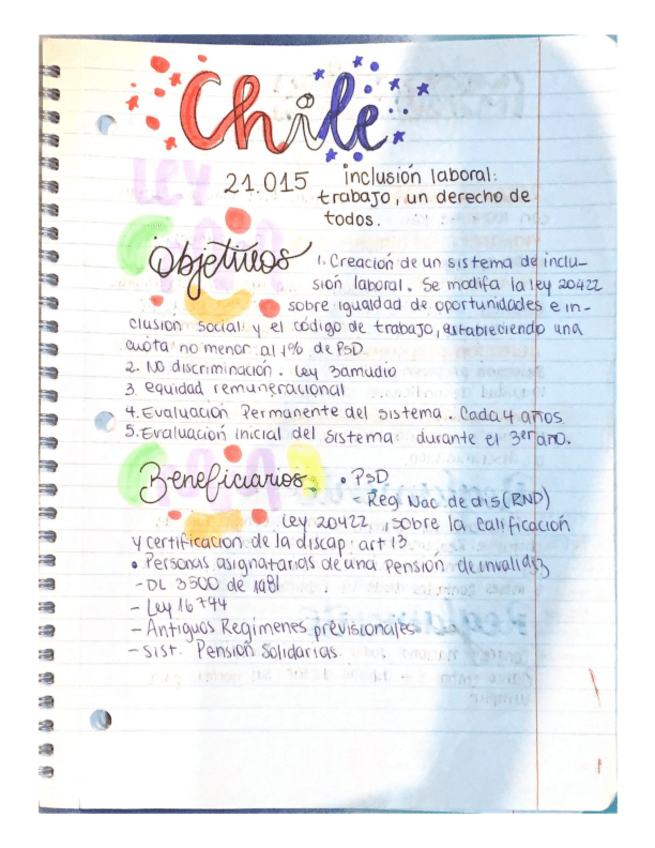 Chile
21.015 inclusión laboral:
trabajo, un derecho de
todos.
Objetivos
1. Creación de un sistema de inclu-
sión laboral. Se modifa la ley 20422
sobre igualdad de oportunidades e in-
clusion social y el código de trabajo, estableciendo una
cuota no menor al 1% de PsD.
2. No discriminación. Ley zamudio
3. equidad remuneracional
4. Evaluación Permanente del sistema. Cada 4 años
5. Evaluación inicial del sistema durante el 3er año.
Beneficiarios
• PsD
- Reg. Nac. de dis (RND)
Ley 20422, sobre la calificación
y certificacion de la discap. art 13
• Personas asignatarias de una Pension de invalidez
- DL 3500 de 1981
- Ley 16744
- Antiguos Regímenes previsionales
- Sist. Pension Solidarias.